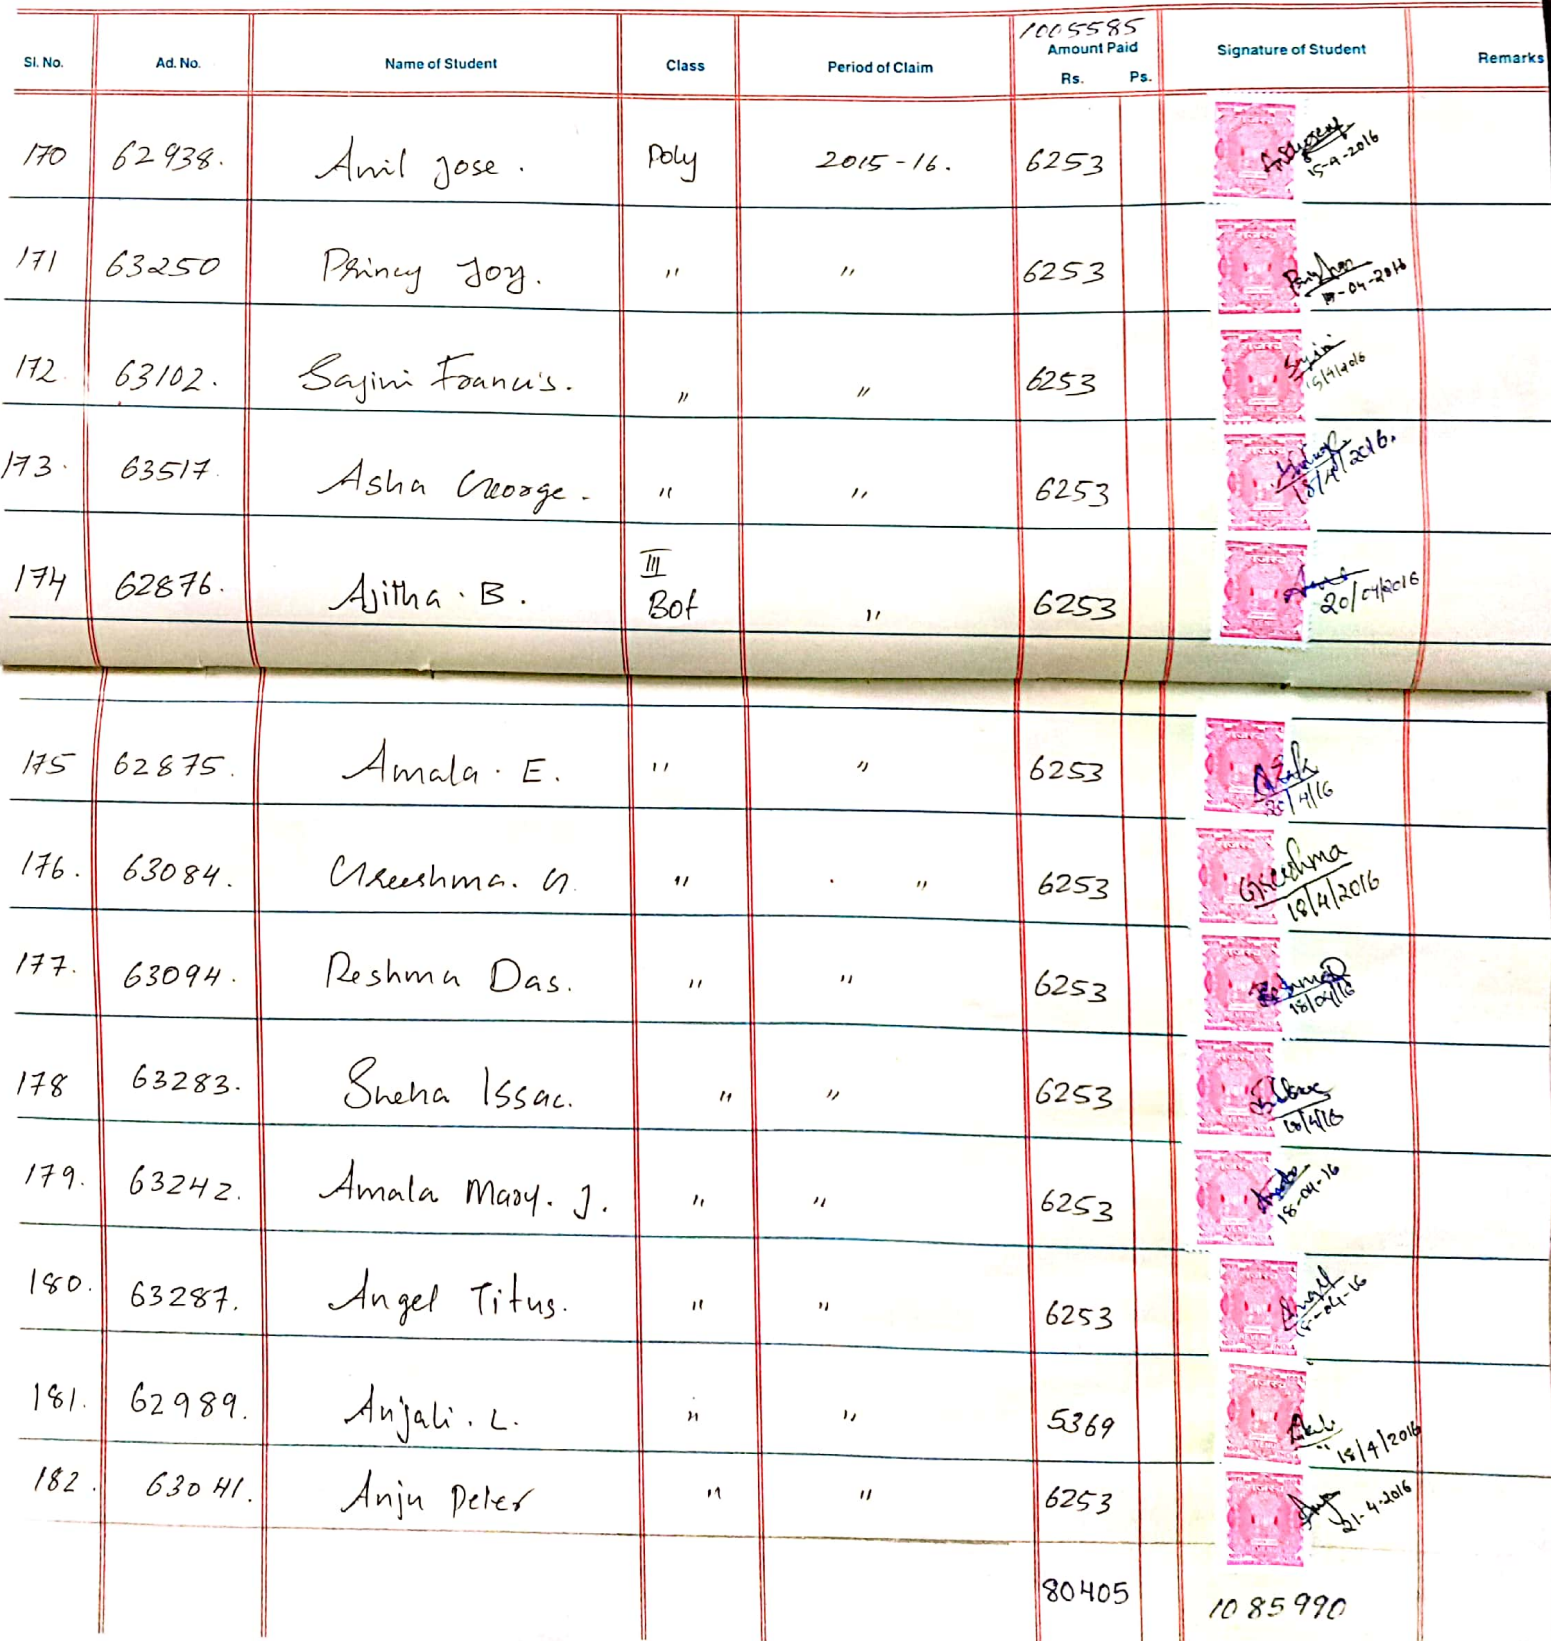 1005585
Sl. No. Ad. No. Name of Student Class Period of Claim Amount Paid Rs. Ps. Signature of Student Remarks
170 62938. Anil Jose. Poly 2015-16. 6253 15-4-2016
171 63250 Princy Joy. " " 6253 -04-2016
172. 63102. Sajini Francis. " " 6253 15/4/2016
173. 63517. Asha George. " " 6253 18/4/2016.
174 62876. Ajitha. B. III Bot " 6253 20/04/2016
175 62875. Amala. E. " " 6253 20/4/16
176. 63084. Greeshma. G. " " 6253 Greeshma 18/4/2016
177. 63094. Reshma Das. " " 6253 ReshmaD 18/04/16
178 63283. Sneha Issac. " " 6253 18/4/16
179. 63242. Amala Mary. J. " " 6253 18-04-16
180. 63287. Angel Titus. " " 6253 Angel 18-04-16
181. 62989. Anjali. L. " " 5369 18/4/2016
182. 63041. Anju Peter " " 6253 Anju 21-4-2016
80405 1085990